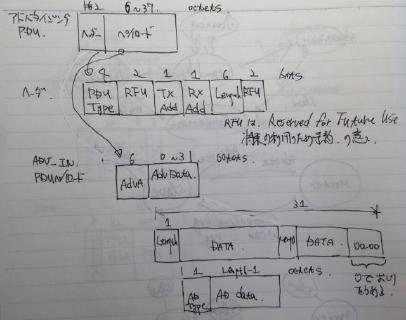 2 6~37. octets
アドバタイジング PDU. ヘッダ ペイロード
4 2 1 1 6 2 bits
ヘッダ. PDU Type RFU Tx Add Rx Add Length RFU
RFU は, Reserved for Future Use
将来の利用のため予約. の意
6 0~31 octets
ADV_IN.
PDUペイロード AdvA AdvData.
31
1
Length DATA. DATA. 00..00
1 Length-1 octets.
AD Type AD data.